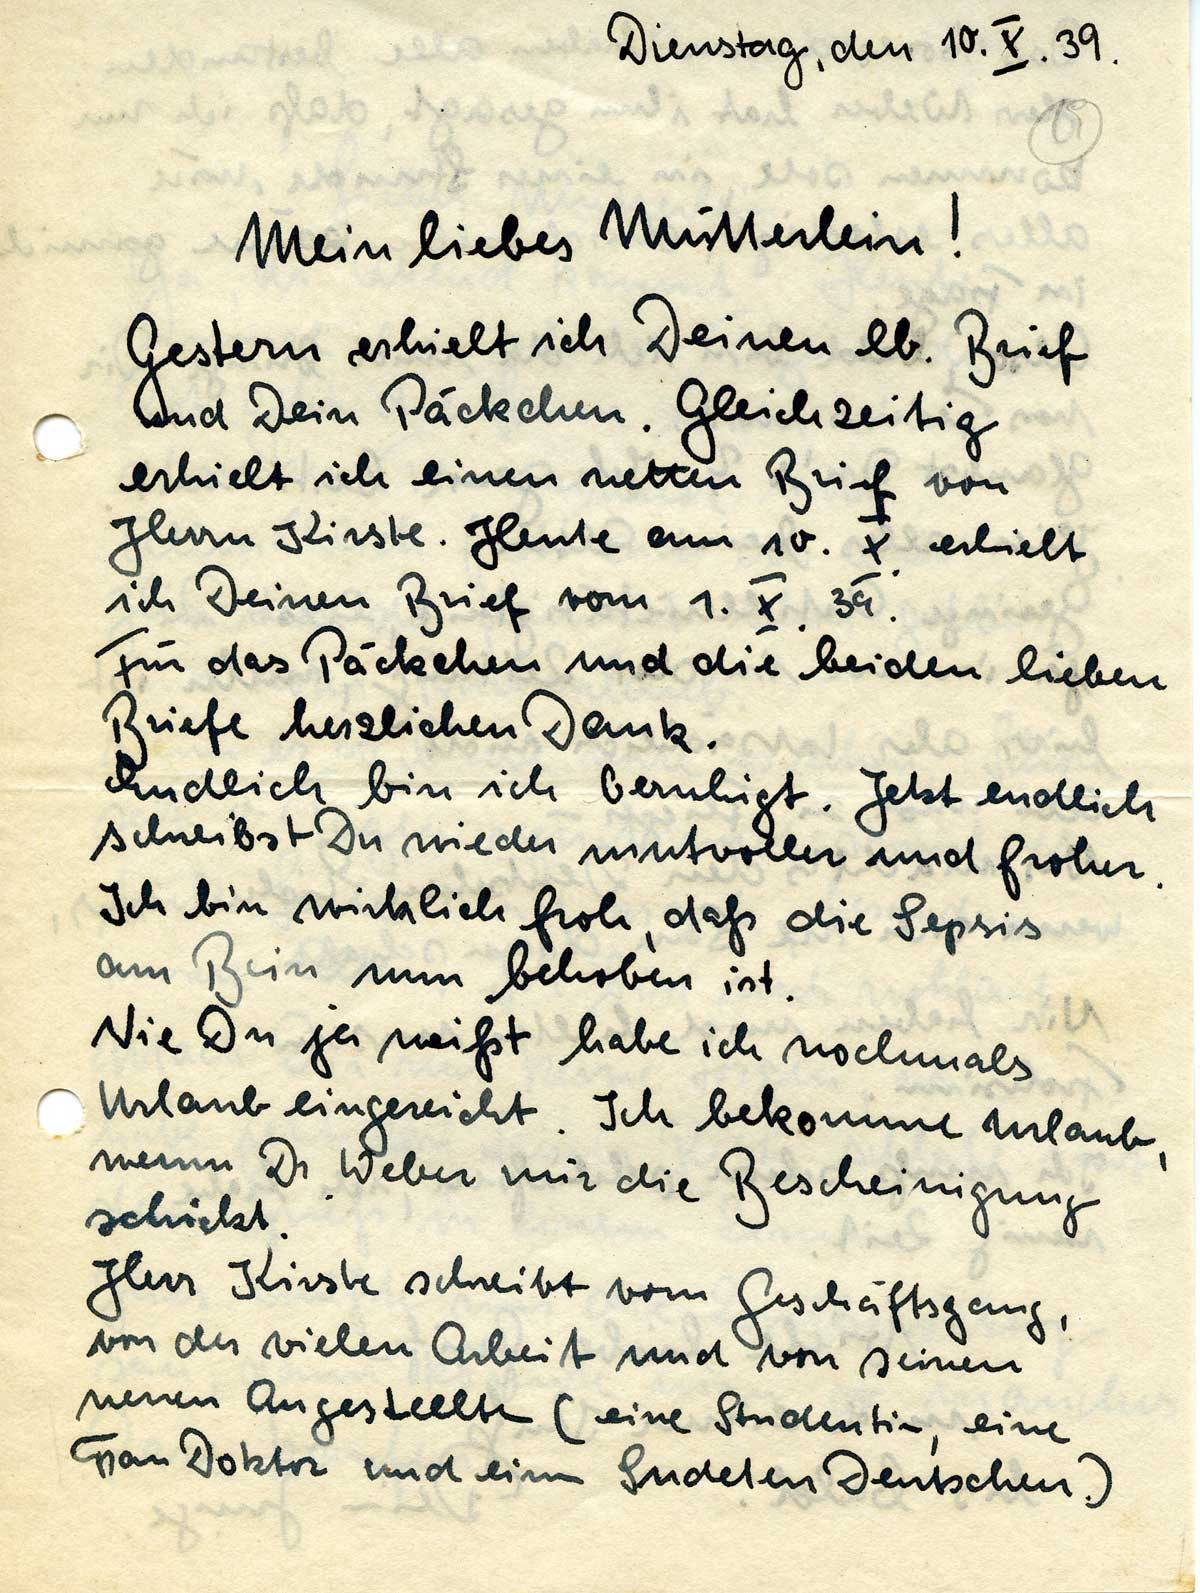 Dienstag, den 10. X. 39.
Mein liebes Mütterlein!
Gestern erhielt ich Deinen lb. Brief
und Dein Päckchen. Gleichzeitig
erhielt ich einen netten Brief von
Herrn Kirste. Heute am 10. X. erhielt
ich Deinen Brief vom 1. X. 39.
Für das Päckchen und die beiden lieben
Briefe herzlichen Dank.
Endlich bin ich beruhigt. Jetzt endlich
schreibst Du wieder mutvoller und froher.
Ich bin wirklich froh, daß die Sepsis
am Bein nun behoben ist.
Wie Du ja weißt habe ich nochmals
Urlaub eingereicht. Ich bekomme Urlaub,
wenn Dr. Weber mir die Bescheinigung
schickt.
Herr Kirste schreibt vom Geschäftsgang,
von der vielen Arbeit und von seinen
neuen Angestellten (eine Studentin, eine
Frau Doktor und einen Sudeten Deutschen.)